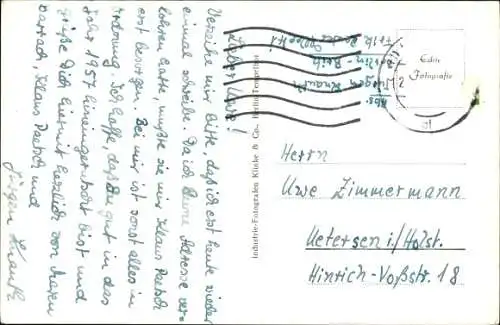 Lieber Uwe!
Verzeihe mir bitte, daß ich erst heute wieder
einmal schreibe. Da ich Deine Adresse ver-
loren hatte, mußte sie mir Klaus Paetsch
erst besorgen. Bei mir ist sonst alles in
Ordnung. Ich hoffe, daß Du gut in das
Jahr 1957 hineingerutscht bist und
grüße Dich hiermit herzlich von
Klaus Paetsch und
Jürgen Knauth
Abs.
Jürgen Knauth
Berlin-Britz
Industrie-Fotografen Klinke & Co., Berlin-Tempelhof
Echte
Fotografie
Herrn
Uwe Zimmermann
Uetersen i/Holst.
Hinrich-Voßstr. 18